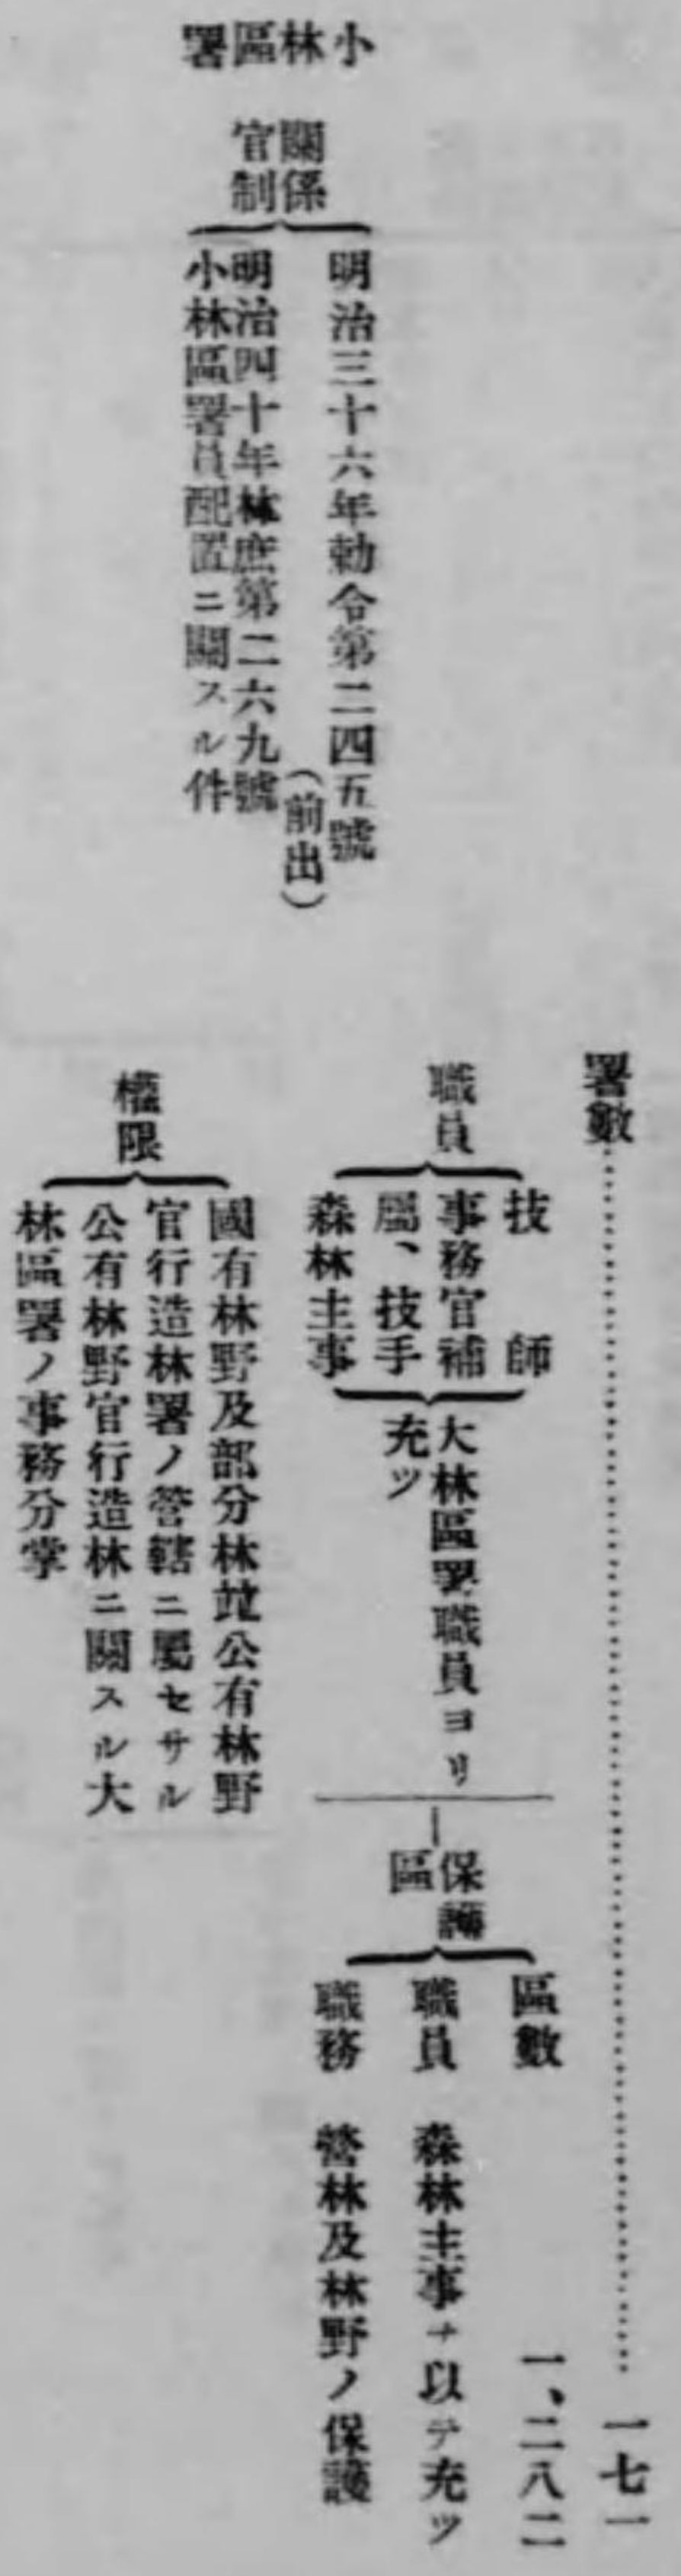 小林區署
關係
官制
明治三十六年勅令第二四五號
(前出)
明治四十年林庶第二六九號
小林區署員配置ニ關スル件
署數……一七一
職員
技師
事務官補
屬、技手
森林主事
大林區署職員ヨリ
充ツ
保護
區
區數 一、二八二
職員 森林主事ヲ以テ充ツ
職務 營林及林野ノ保護
權限
國有林野及部分林竝公有林野
官行造林署ノ管轄ニ屬セサル
公有林野官行造林ニ關スル大
林區署ノ事務分掌